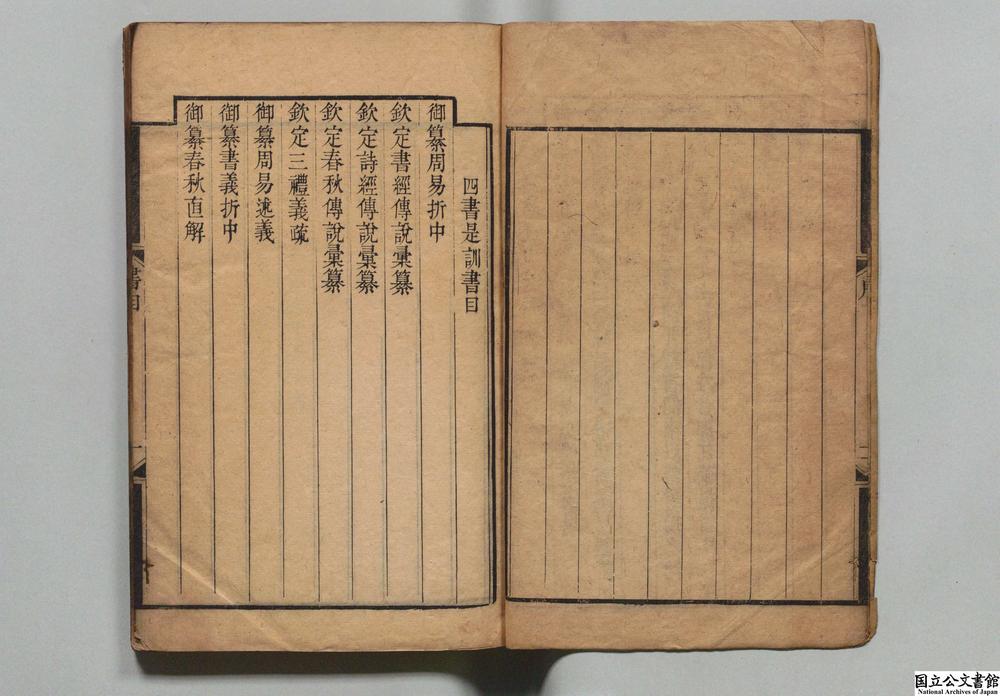 四書是訓書目
御纂周易折中
欽定書經傳說彙纂
欽定詩經傳說彙纂
欽定春秋傳說彙纂
欽定三禮義疏
御纂周易述義
御纂書義折中
御纂春秋直解
書目
一
国立公文書館
National Archives of Japan